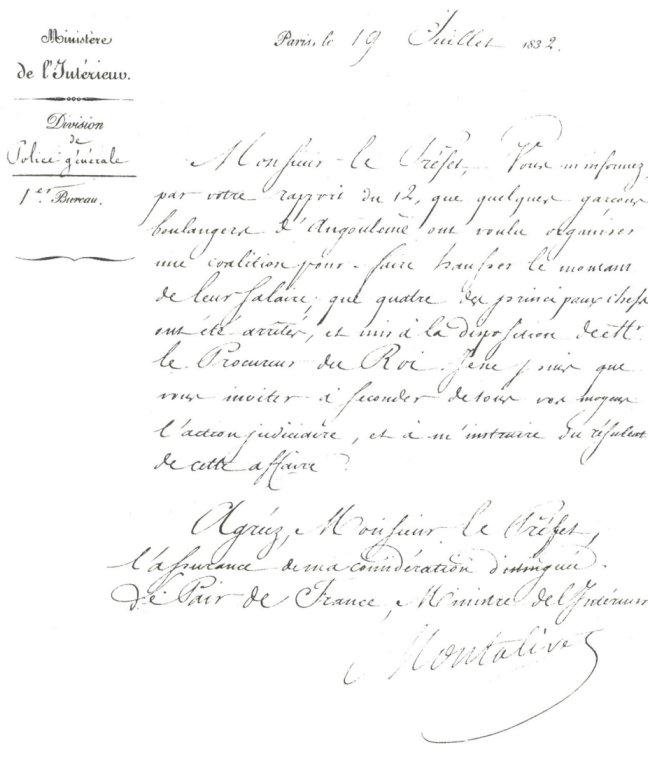 Ministère
de l'Intérieur.
Division
de
Police générale
1er Bureau.
Paris, le 19 Juillet 1832.
Monsieur le Préfet, Vous m'informez,
par votre rapport du 12, que quelques garçons
boulangers d'Angoulême ont voulu organiser
une coalition pour faire hausser le montant
de leur salaire; que quatre des principaux chefs
ont été arrêtés, et mis à la disposition de Mr.
le Procureur du Roi. Je ne puis que
vous inviter à seconder de tous vos moyens
l'action judiciaire, et à m'instruire du résultat
de cette affaire.
Agréez, Monsieur le Préfet,
l'assurance de ma considération distinguée.
Le Pair de France, Ministre de l'Intérieur
Montalivet